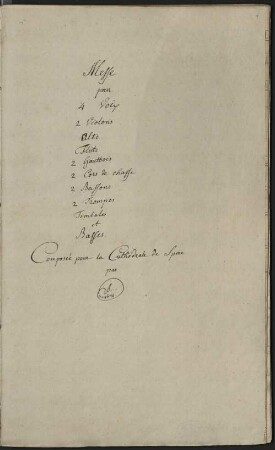 Messe
par
4 Voix
2 Violons
Alto
Flute
2 Hautbois
2 Cors de chasse
2 Bassons
2 Trompes
Timbales
et
Basses.
Composée pour la Cathédrale de Spire
par